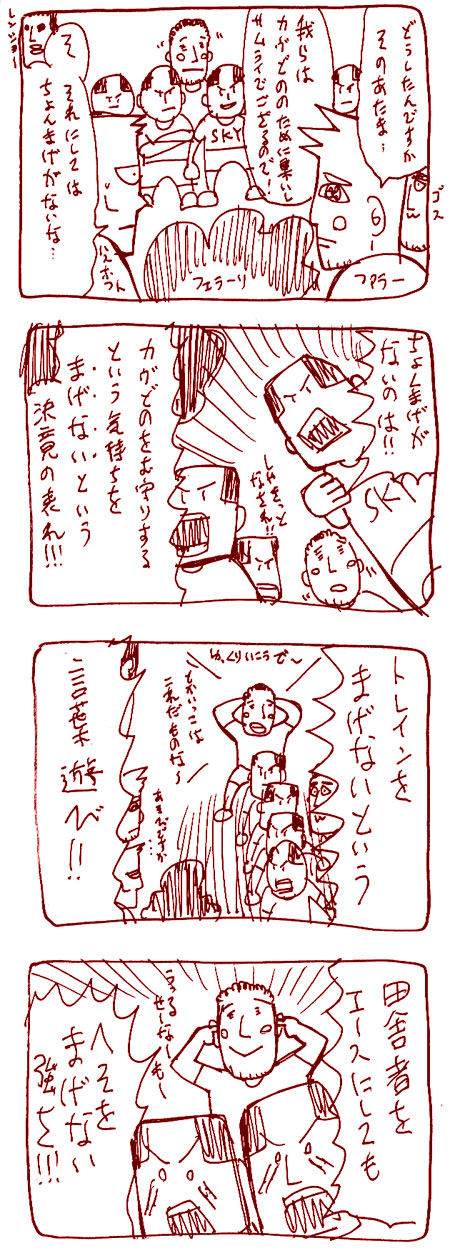 どうしたんですか
そのあたま…
ゴス
ファラー
我らは
カヴどののために集いし
サムライでござるので!
SKY
フェラーリ
そ
それにしては
ちょんまげがないな…
レンショー
ちょんまげが
ないのは!!
SKY
しゃきっと
なされ!!
カヴどのをお守りする
という気持ちを
まげないという
決意の表れ!!!
トレインを
まげないという
ゆっくりいこうで〜
これだものな〜
言葉遊び!!
田舎者を
エースにしても
うるせーなーもー
へそを
まげない
強さ!!!